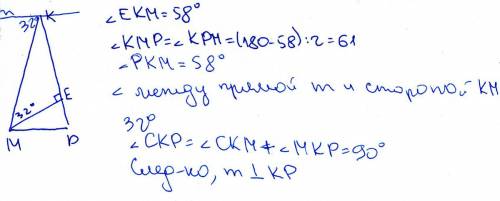 m K
32°
32°
E
M P
∠EKM = 58°
∠KMP = ∠KPM = (180-58) : 2 = 61
∠PKM = 58°
∠ между прямой m и стороной KM
32°
∠CKP = ∠CKM + ∠MKP = 90°
След-но, m ⊥ KP